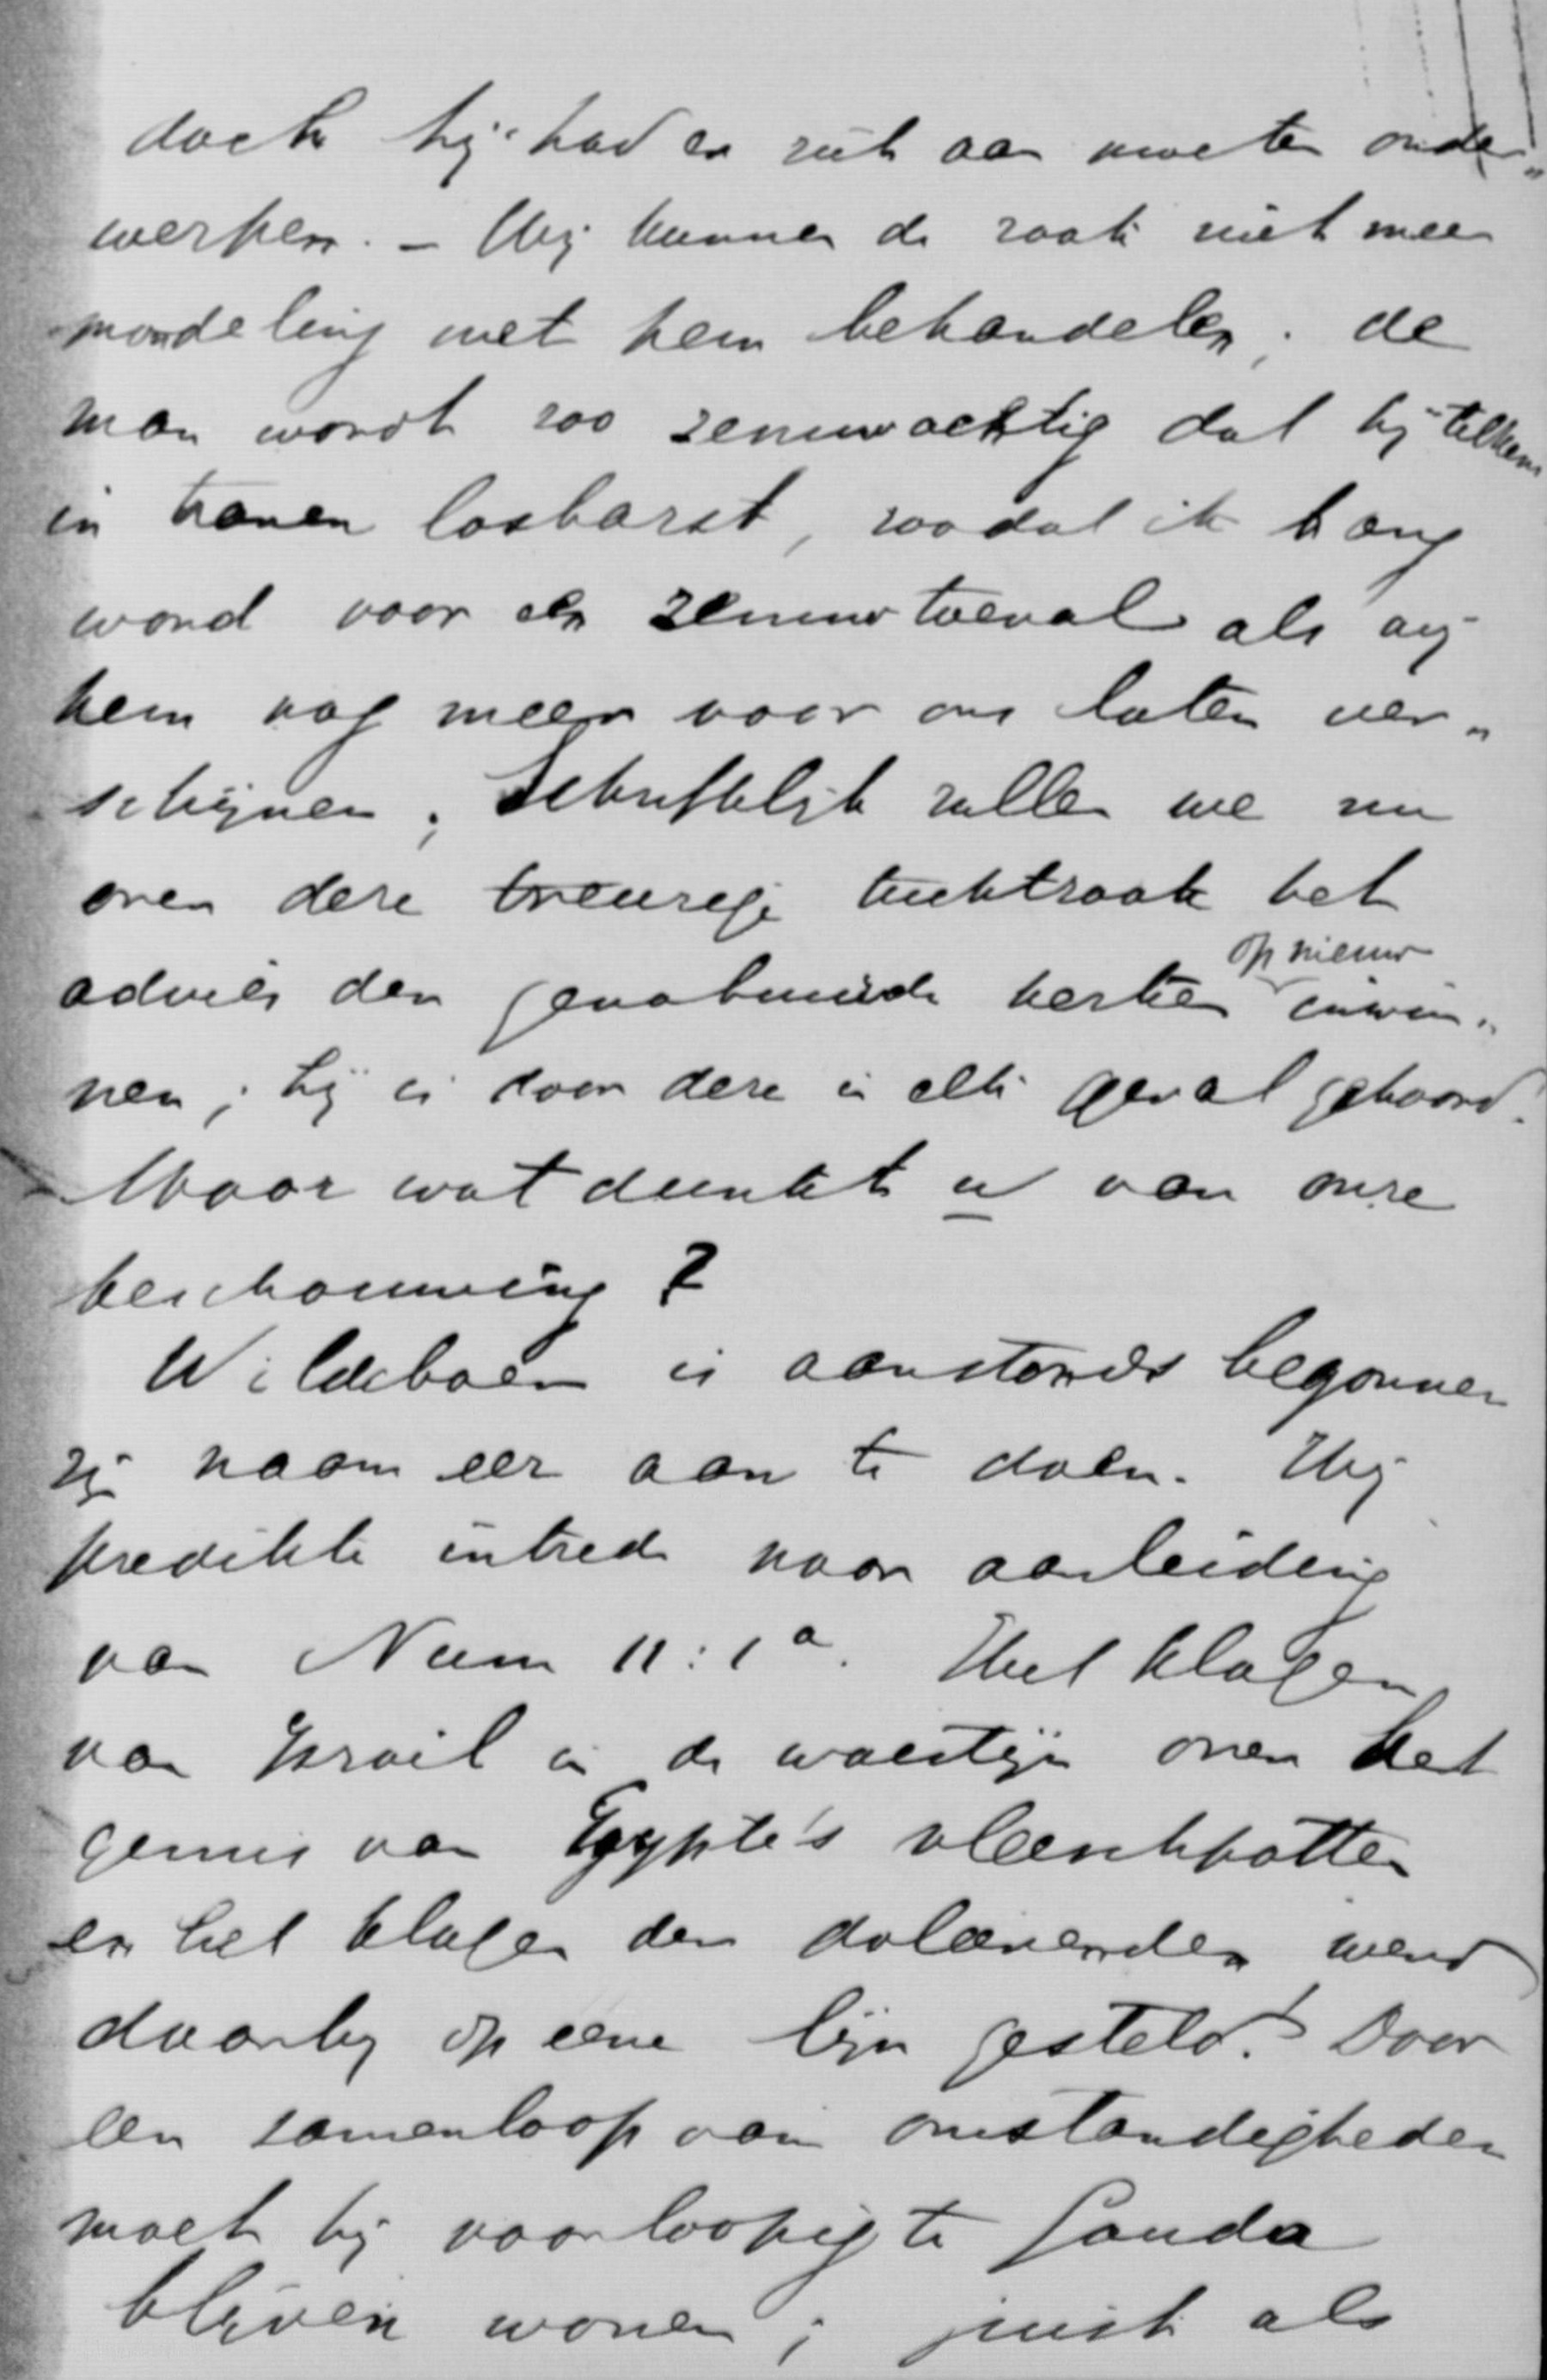 doch hij had er zich aan moeten onder„
werpen. – Wij kunnen de zaak niet meer
mondeling met hem behandelen; de
man wordt zoo zenuwachtig dat hij telkens
in tranen losbarst, zoodat ik bang
word voor een zenuwtoeval als wij
hem nog meer voor ons laten ver„
schijnen; Schriftelijk zullen we nu
over deze treurige tuchtzaak het
advies der genabuurde kerken op nieuw inwin„
nen; hij is door deze in elk geval gehoord.
Maar wat dunkt u van onze
beschouwing?
Wildeboer is aanstonds begonnen
zijn naam eer aan te doen. Hij
predikte intrede naar aanleiding
van Num 11:1a. Het klagen
van Israël in de woestijn over het
gemis van Egypte's vleeschpotten
en het klagen der doleerenden werd
daarbij op eene lijn gesteld! Door
een samenloop van omstandigheden
moet hij voorloopig te Gouda
blijven wonen; juist als